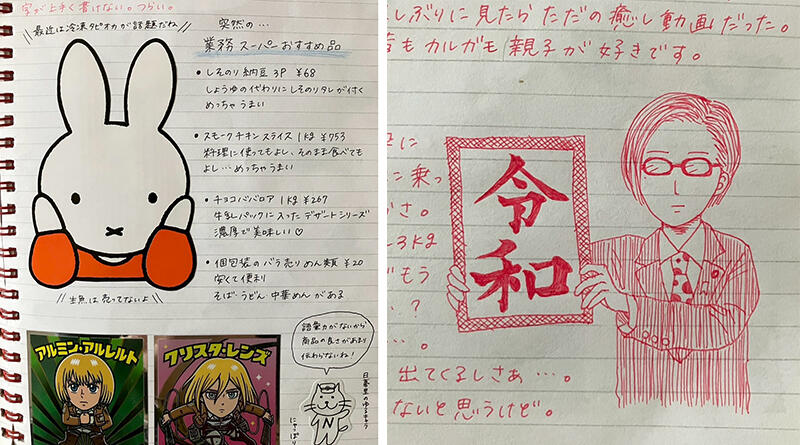 字が上手く書けない。つらい。
最近は冷凍タピオカが話題だね
突然の…
業務スーパーおすすめ品
• しそのり納豆 3P ¥68
しょうゆの代わりにしそのりタレが付く
めっちゃうまい
• スモークチキンスライス 1kg ¥753
料理に使ってもよし、そのまま食べても
よし…めっちゃうまい
• チョコババロア 1kg ¥267
牛乳パックに入ったデザートシリーズ
濃厚で美味しい♡
• 個包装のバラ売りめん類 ¥20
安くて便利
そば・うどん・中華めんがある
生魚は売ってないよ
アルミン・アルレルト
クリスタ・レンズ
語彙力がないから
商品の良さがあまり
伝わらないね!
日暮里のゆるキャラ
にゃっぽり
N
しぶりに見たらただの癒し動画だった。
もカルガモ親子が好きです。
に
に乗っ
さ。
3kg
もう
…?
…。
出てくるしさぁ…。
ないと思うけど。
令和